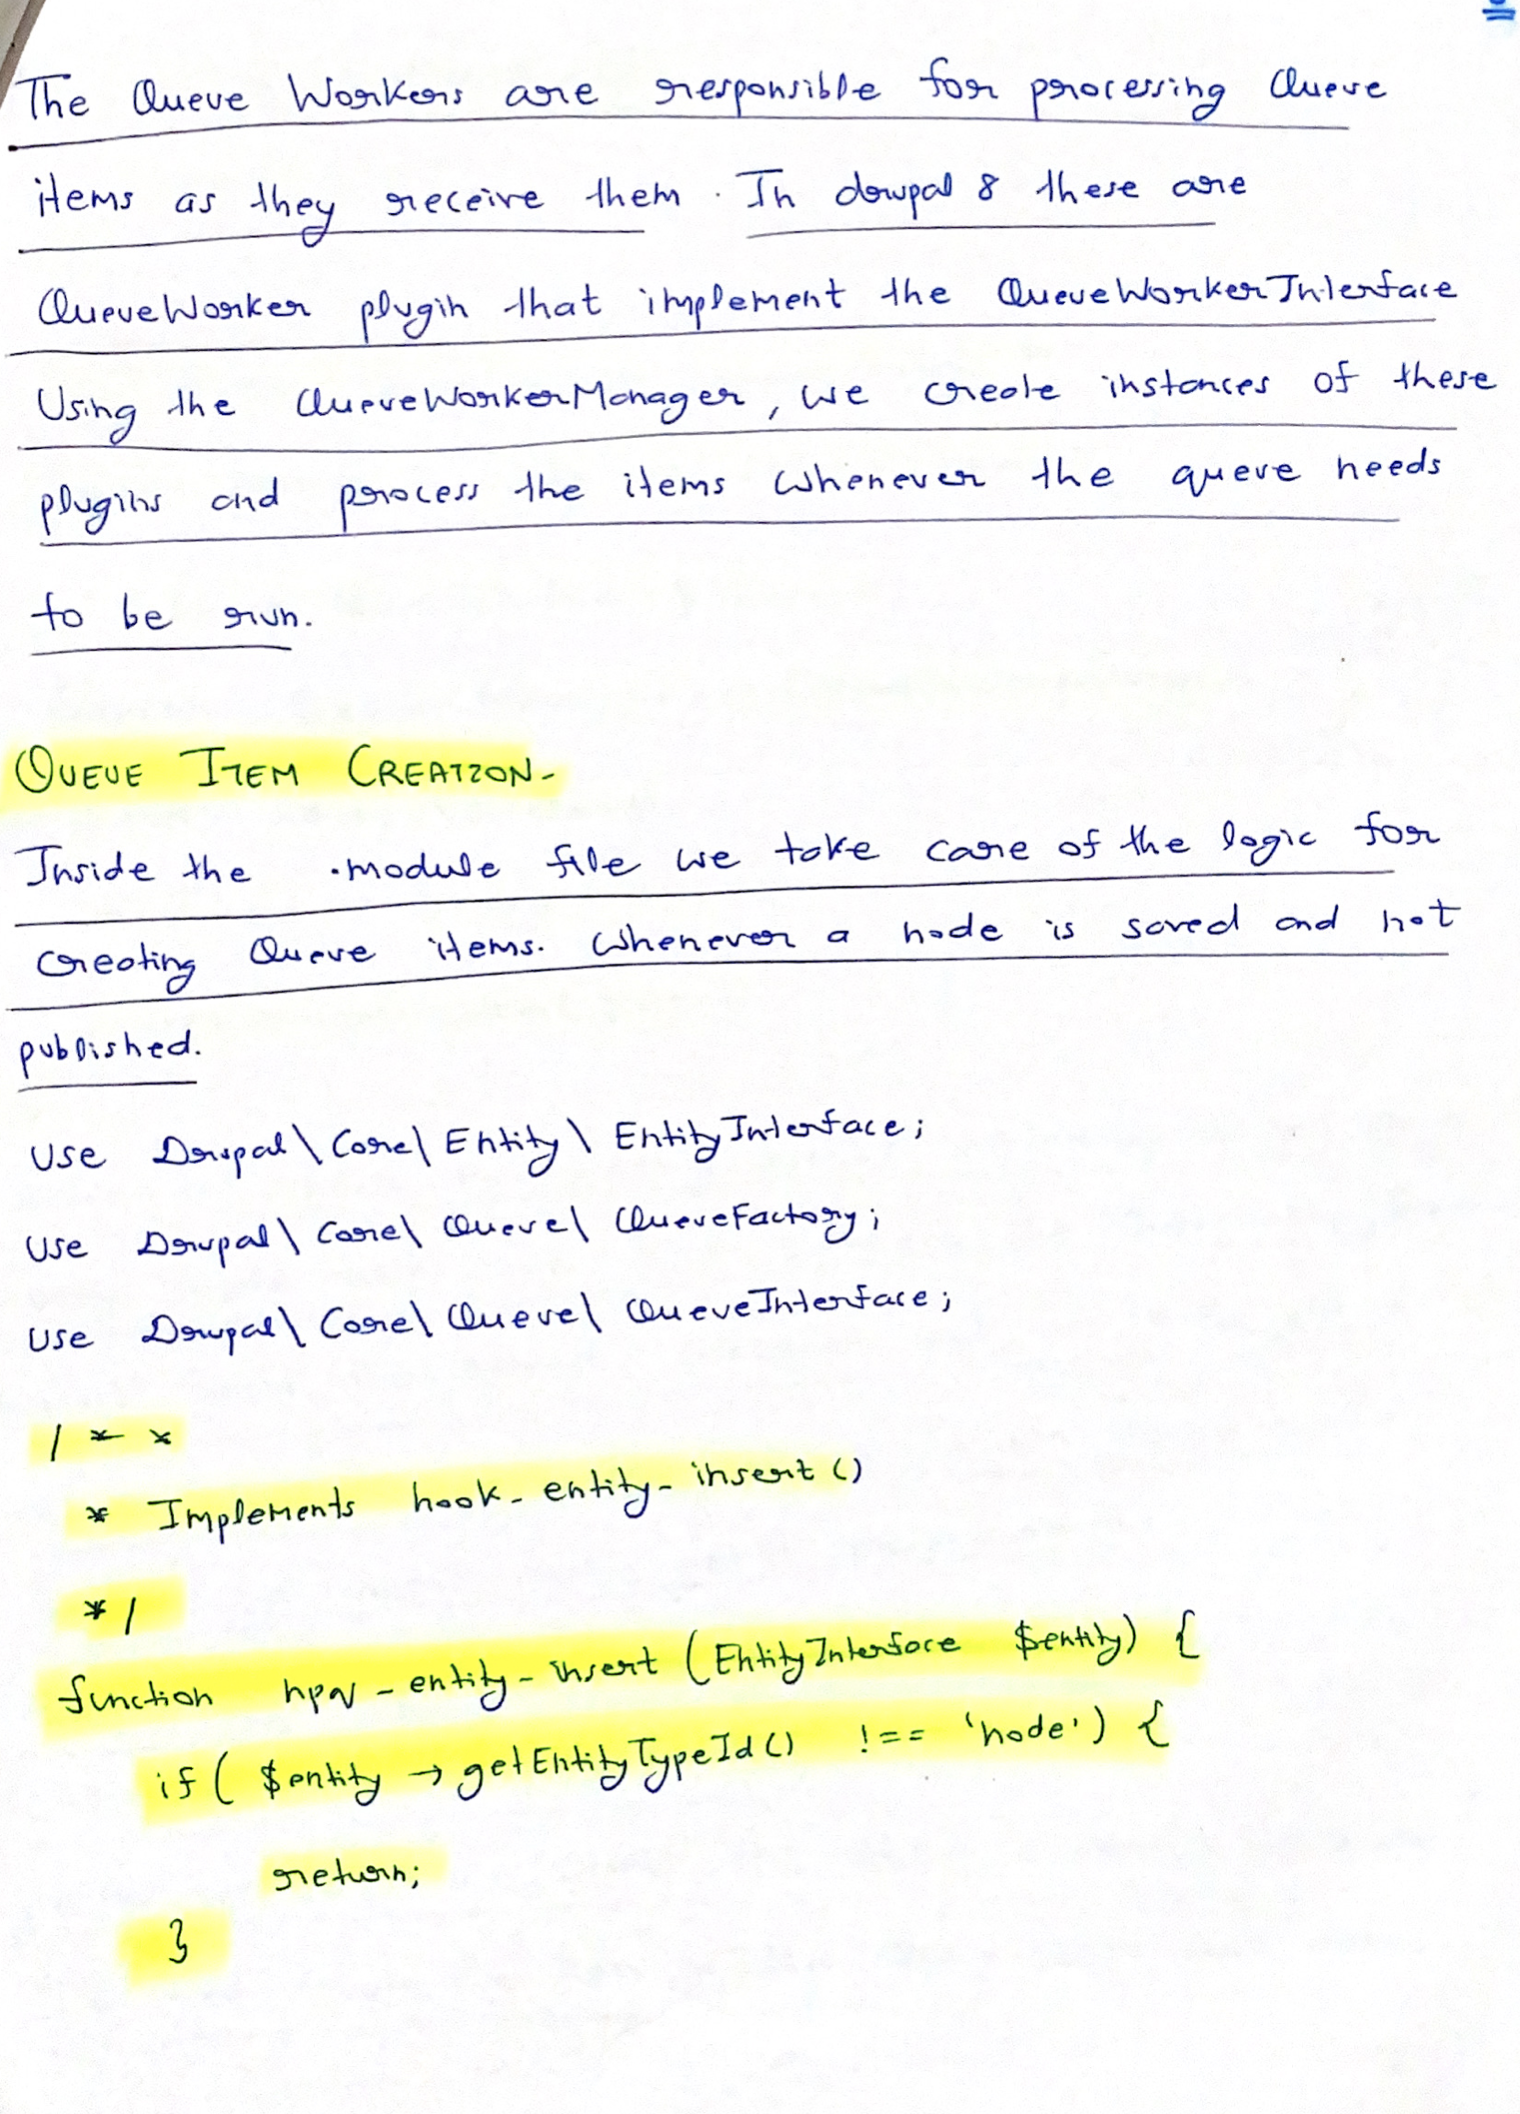 The Queue Workers are responsible for processing Queue
items as they receive them. In drupal 8 these are
QueueWorker plugin that implement the QueueWorkerInterface
Using the QueueWorkerManager, we create instances of these
plugins and process the items whenever the queue needs
to be run.
QUEUE ITEM CREATION-
Inside the .module file we take care of the logic for
creating Queue items. Whenever a node is saved and not
published.
use Drupal\Core\Entity\EntityInterface;
use Drupal\Core\Queue\QueueFactory;
use Drupal\Core\Queue\QueueInterface;
/**
* Implements hook_entity_insert()
*/
function npq_entity_insert (EntityInterface $entity) {
if ( $entity → getEntityTypeId() !== 'node') {
return;
}